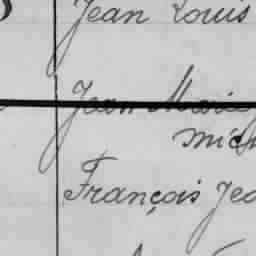 Jean Louis
Jean Marie
François